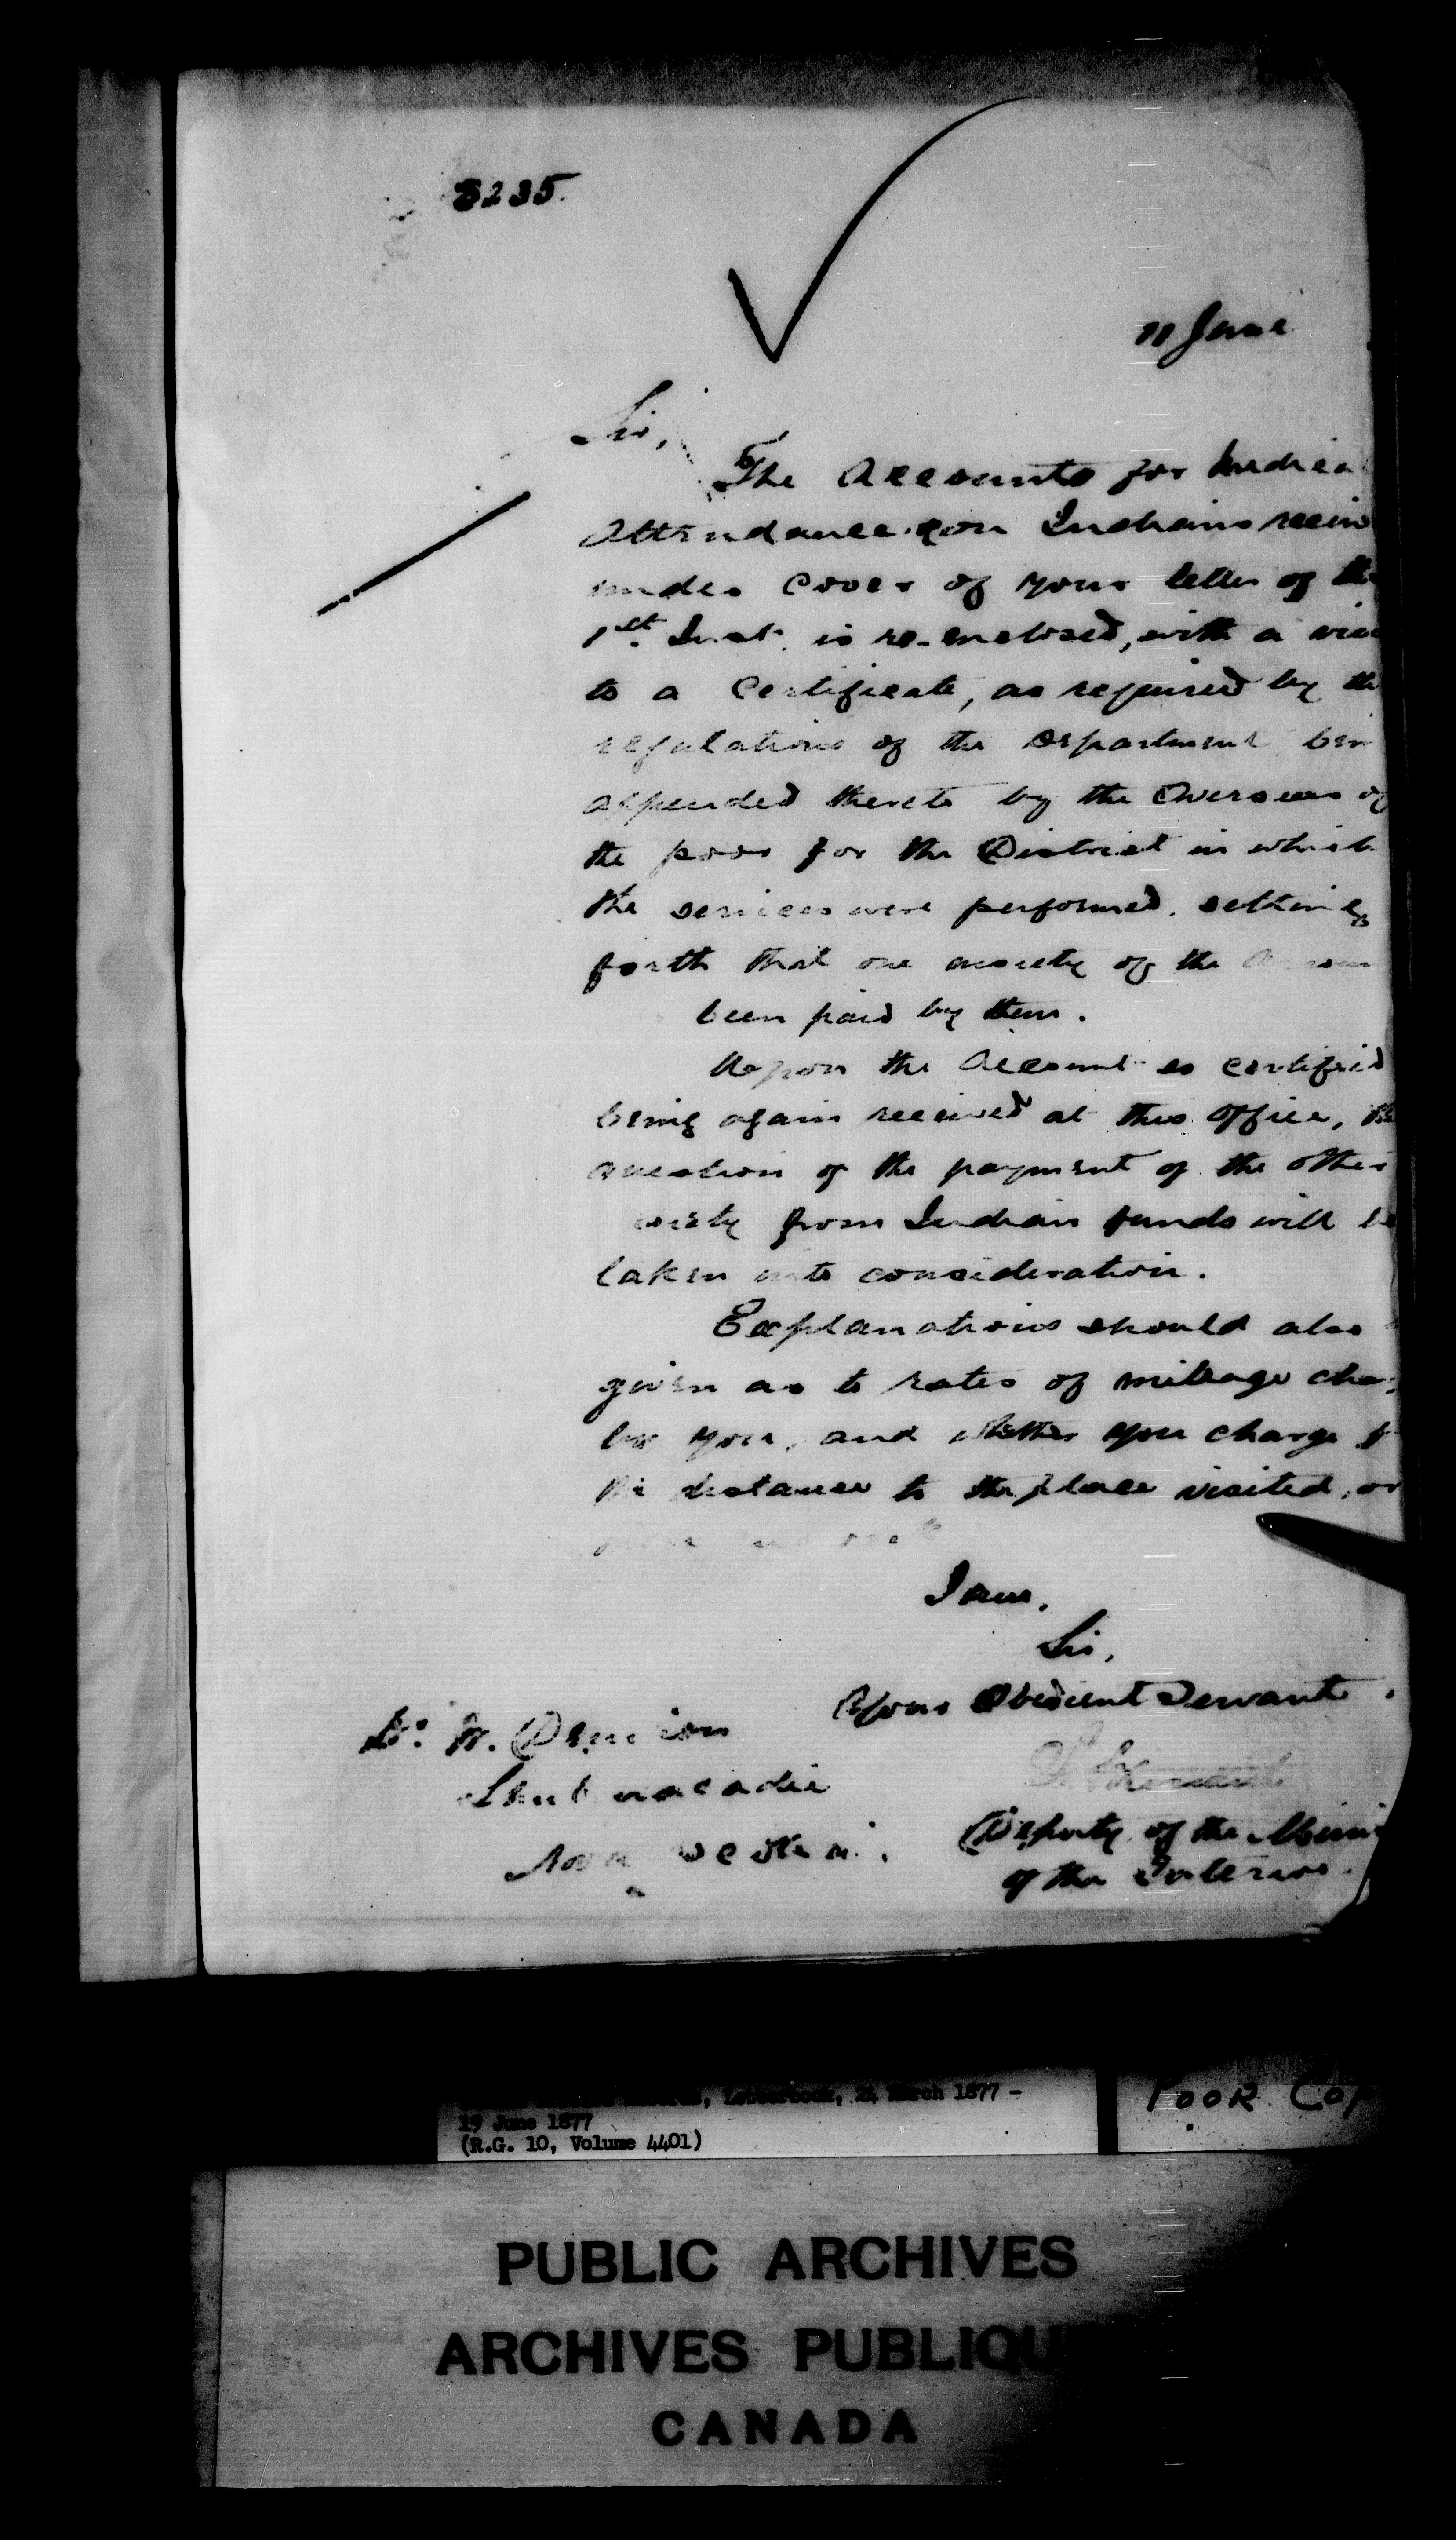 8235.
11 June
Sir,
The Accounts for Medical
Attendance on Indians receiv
under cover of your letter of the
1st. Inst. is re-enclosed, with a view
to a Certificate, as required by the
regulations of the Department bein
appended thereto by the Overseers of
the poor for the District in which
the services were performed, setting
forth that one moiety of the
been paid by them.
Upon the Account so certified
being again received at this Office, the
question of the payment of the other
moiety from Indian funds will be
taken into consideration.
Explanations should also
given as to rates of mileage char
by you, and whether you charge f
the distance to the place visited, or
I am,
Sir,
Your Obedient Servant.
Dr.
Shubenacadie
Nova Scotia.
Deputy of the Minis
of the Interior.
, Letterbook, 24 March 1877 -
19 June 1877
(R.G. 10, Volume 4401)
POOR COP
PUBLIC ARCHIVES
ARCHIVES PUBLIQU
CANADA